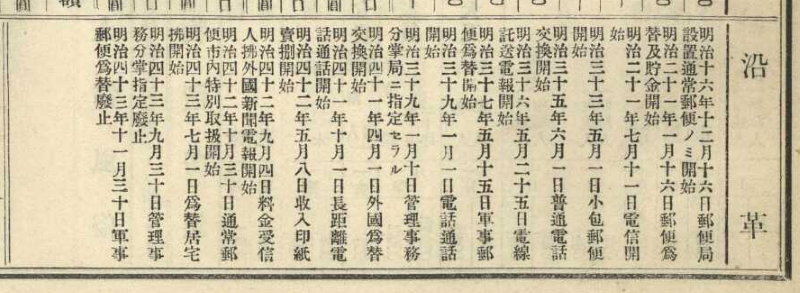 沿革
明治十六年十二月十六日郵便局
設置通常郵便ノミ開始
明治二十一年一月十六日郵便爲
替及貯金開始
明治二十一年七月十一日電信開
始
明治三十三年五月一日小包郵便
開始
明治三十五年六月一日普通電話
交換開始
明治三十六年五月二十五日電線
託送電報開始
明治三十七年五月十五日軍事郵
便爲替開始
明治三十九年一月一日電話通話
開始
明治三十九年一月十日管理事務
分掌局ニ指定セラル
明治四十一年四月一日外國爲替
交換開始
明治四十一年十月一日長距離電
話通話開始
明治四十二年五月八日收入印紙
賣捌開始
明治四十二年九月四日料金受信
人拂外國新聞電報開始
明治四十二年十月三十日通常郵
便市内特別取扱開始
明治四十三年七月一日爲替居宅
拂開始
明治四十三年九月三十日管理事
務分掌指定廢止
明治四十三年十一月三十日軍事
郵便爲替廢止